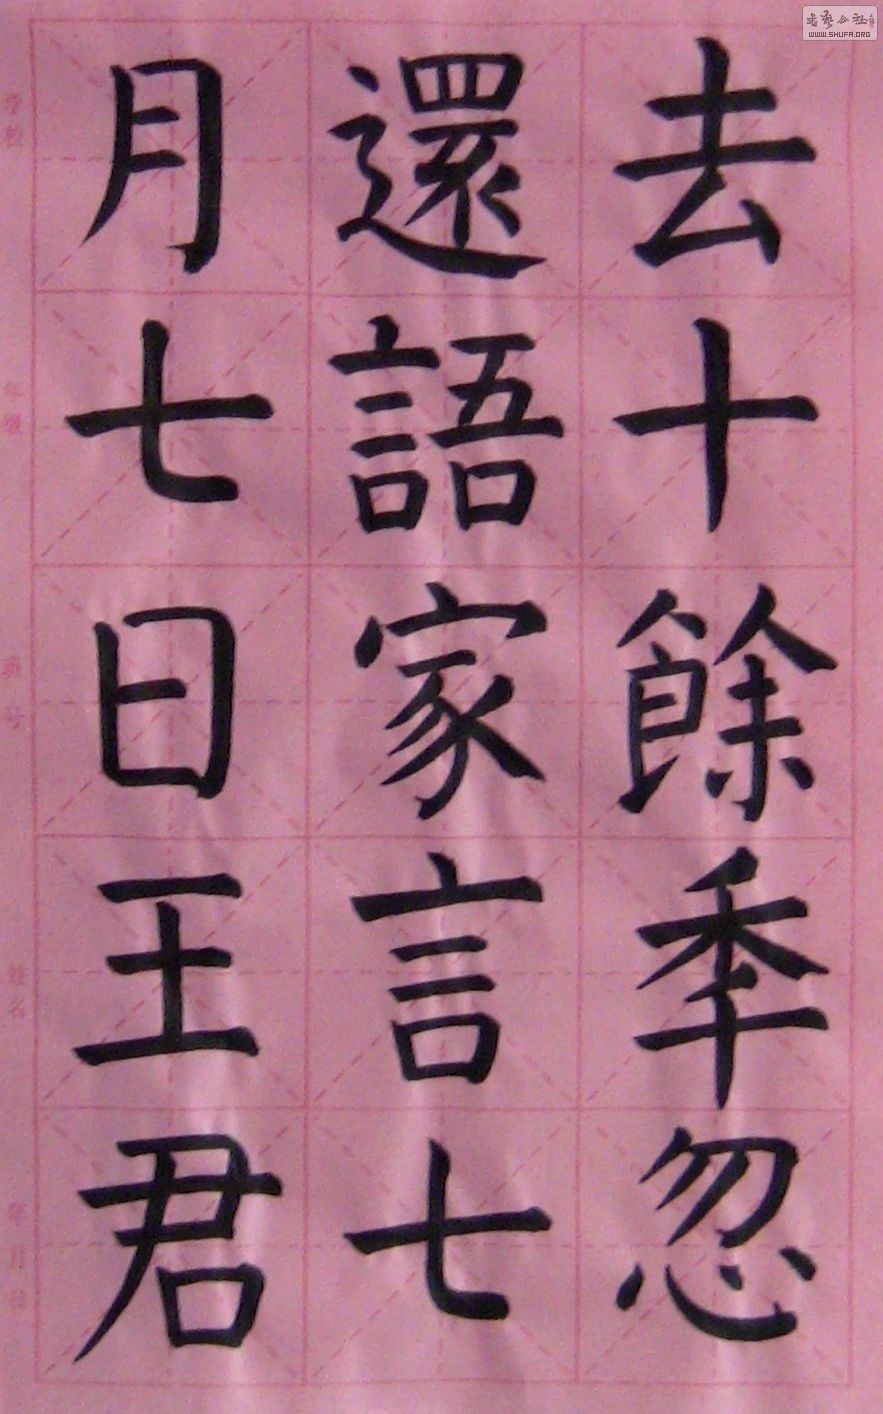 去十餘秊忽
還語家言七
月七日王君
書藝公社
WWW.SHUFA.ORG
学校
年级
班号
姓名
年月日